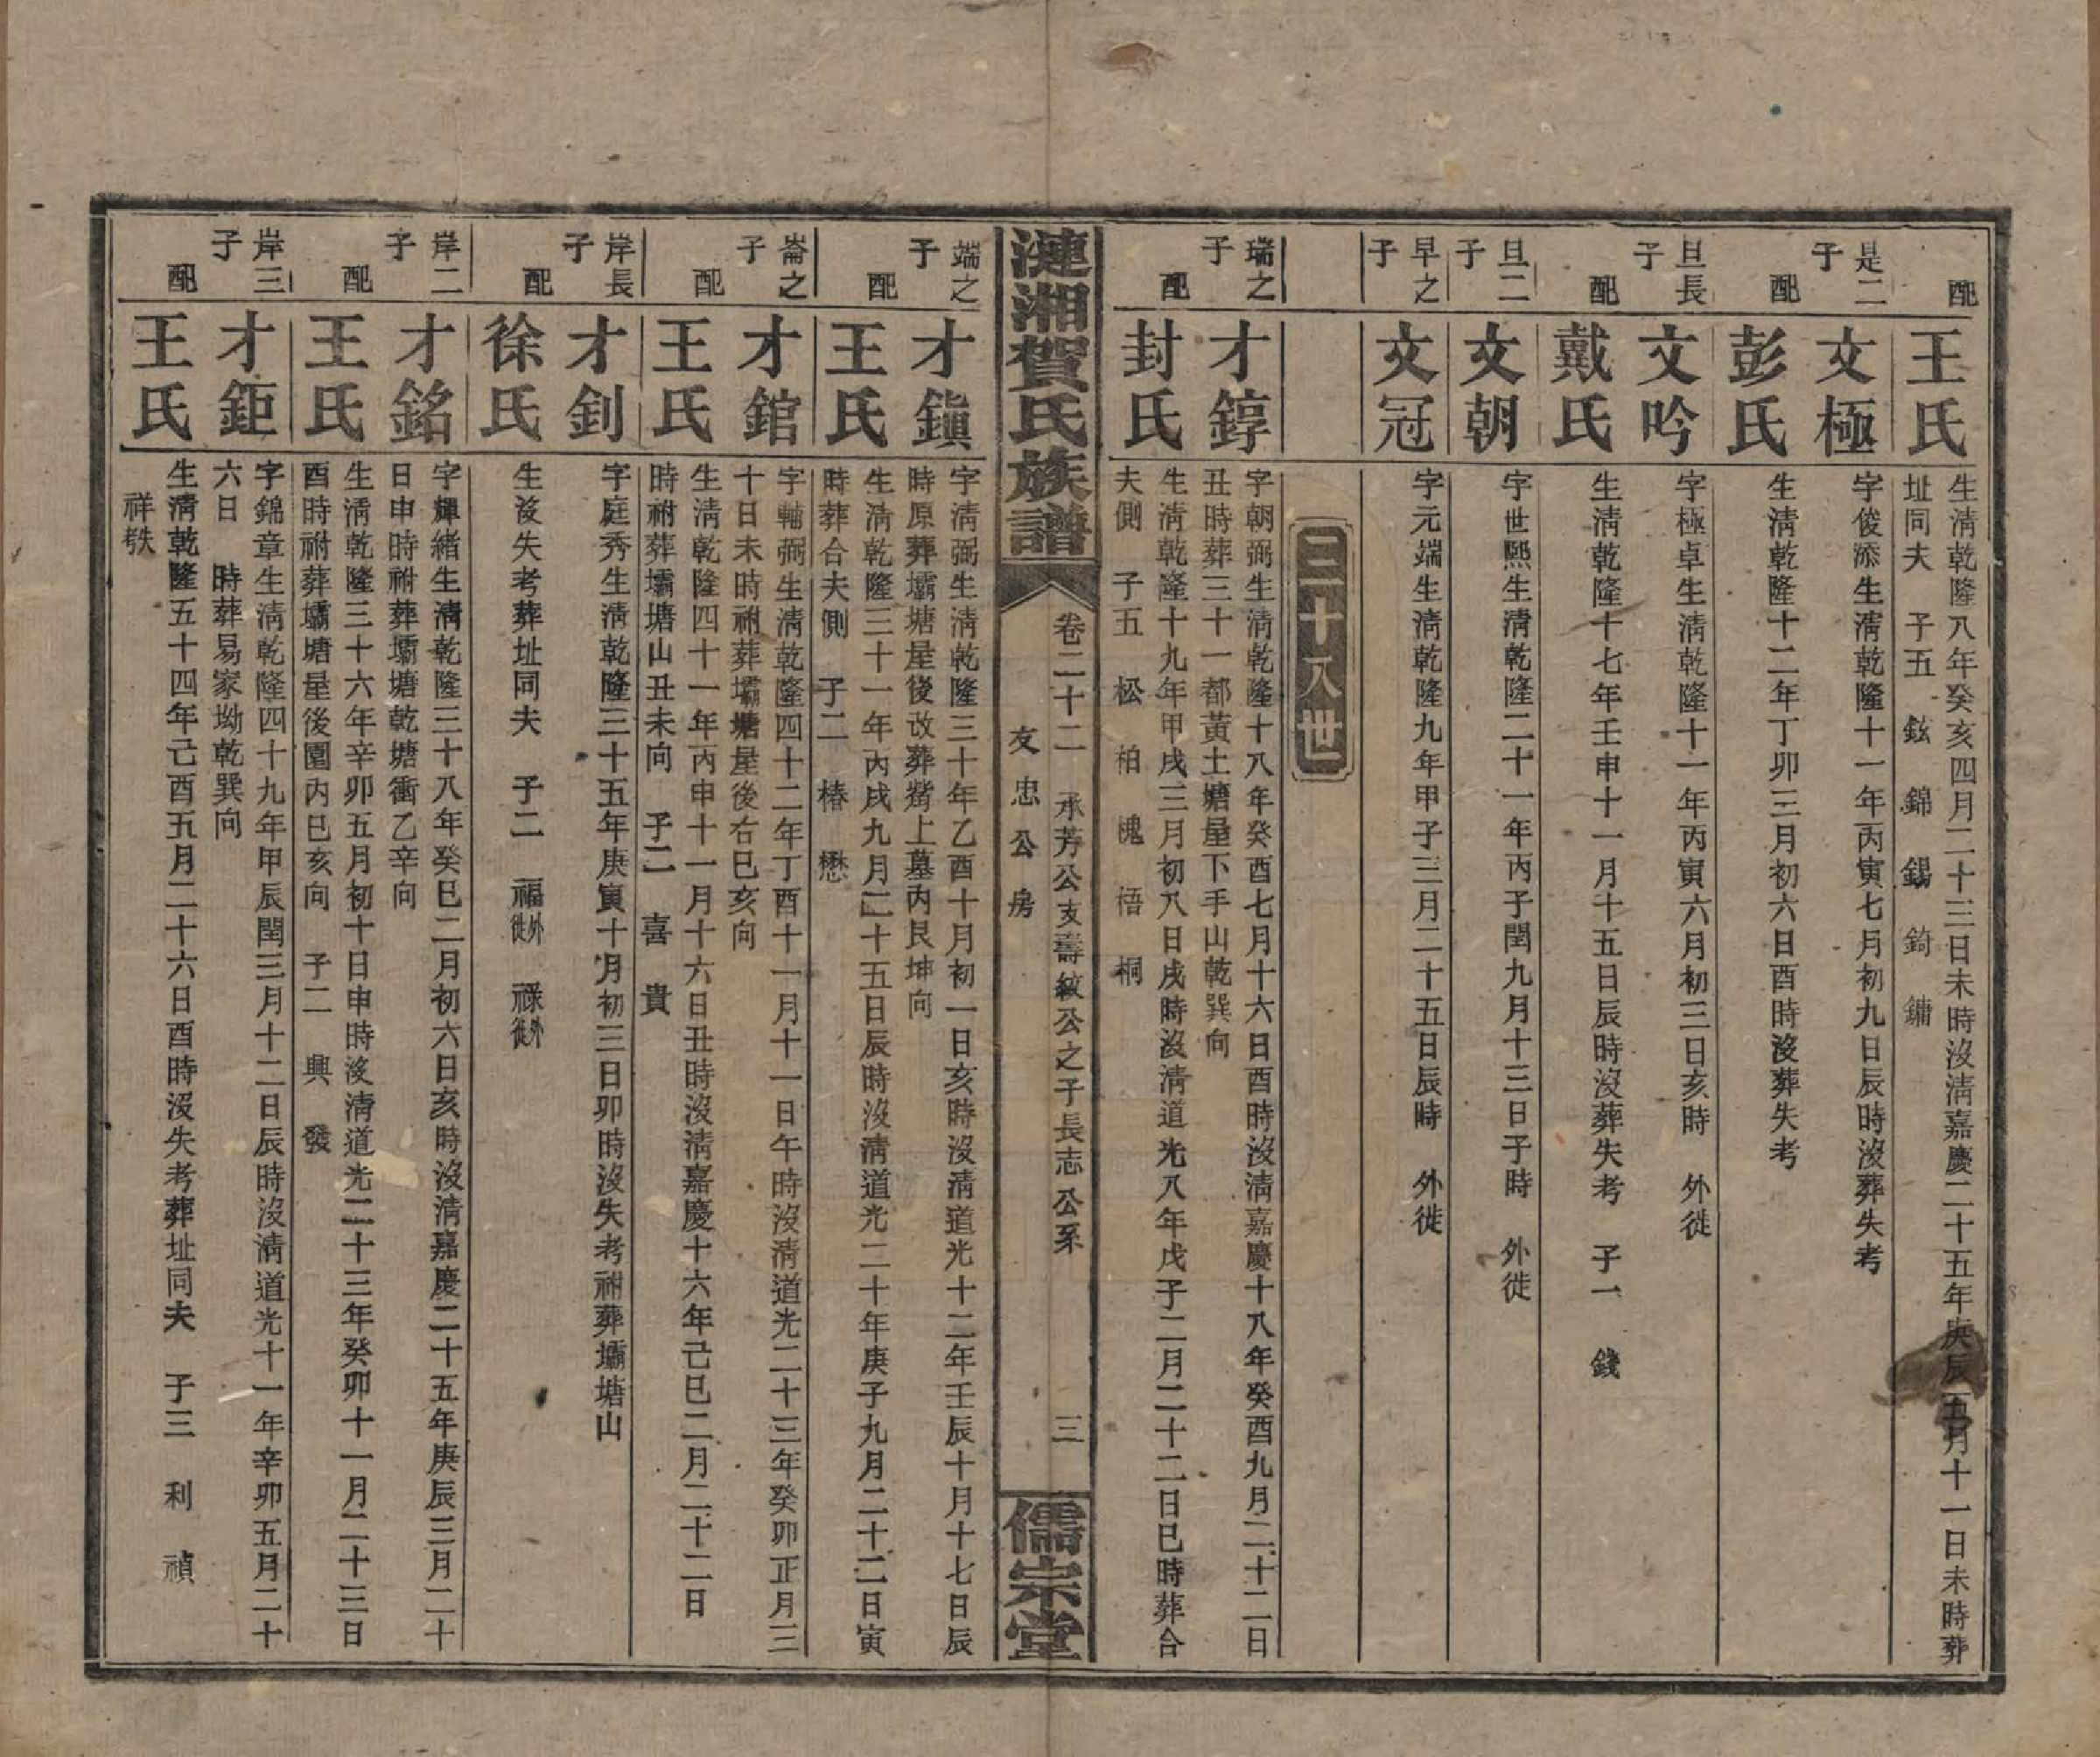 配
王氏
生清乾隆八年癸亥四月二十三日未時沒清嘉慶二十五年庚辰五月十一日未時葬
址同夫　子五　鉉　錦　錫　錡　鏞
是二子
文極
字俊添生清乾隆十一年丙寅七月初九日辰時沒葬失考
配
彭氏
生清乾隆十二年丁卯三月初六日酉時沒葬失考
旦長子
文吟
字極卓生清乾隆十一年丙寅六月初三日亥時　外徙
配
戴氏
生清乾隆十七年壬申十一月十五日辰時沒葬失考　子一　錢
旦二子
文朝
字世熙生清乾隆二十一年丙子閏九月十三日子時　外徙
早之子
文冠
字元端生清乾隆九年甲子三月二十五日辰時　外徙
三十八世
瑞之子
才錞
字朝弼生清乾隆十八年癸酉七月十六日酉時沒清嘉慶十八年癸酉九月二十二日
丑時葬三十一都黃土塘屋下手山乾巽向
配
封氏
生清乾隆十九年甲戌三月初八日戌時沒清道光八年戊子二月二十二日巳時葬合
夫側　子五　松　柏　槐　梧　桐
漣湘賀氏族譜
卷二十二　承芳公支壽紋公之子長志公系　三
友忠公房
儒宗堂
端之子
才鎮
字清弼生清乾隆三十年乙酉十月初一日亥時沒清道光十二年壬辰十月十七日辰
時原葬壩塘屋後改葬嵆上墓內艮坤向
配
王氏
生清乾隆三十一年丙戌九月二十五日辰時沒清道光二十年庚子九月二十二日寅
時葬合夫側　子二　椿　懋
崙之子
才錧
字輔弼生清乾隆四十二年丁酉十一月十一日午時沒清道光二十三年癸卯正月三
十日未時祔葬壩塘屋後右巳亥向
配
王氏
生清乾隆四十一年丙申十一月十六日丑時沒清嘉慶十六年己巳二月二十二日
時祔葬壩塘山丑未向　子二　喜　貴
岸長子
才釗
字庭秀生清乾隆三十五年庚寅十月初三日卯時沒失考祔葬壩塘山
配
徐氏
生沒失考葬址同夫　子二　福外徙　祿外徙
岸二子
才銘
字輝緒生清乾隆三十八年癸巳二月初六日亥時沒清嘉慶二十五年庚辰三月二十
日申時祔葬壩塘乾塘衝乙辛向
配
王氏
生清乾隆三十六年辛卯五月初十日申時沒清道光二十三年癸卯十一月二十三日
酉時祔葬壩塘屋後園內巳亥向　子二　興　發
岸三子
才鉅
字錦章生清乾隆四十九年甲辰閏三月十二日辰時沒清道光十一年辛卯五月二十
六日　時葬易家坳乾巽向
配
王氏
生清乾隆五十四年己酉五月二十六日酉時沒失考葬址同夫　子三　利　禎
祥殀